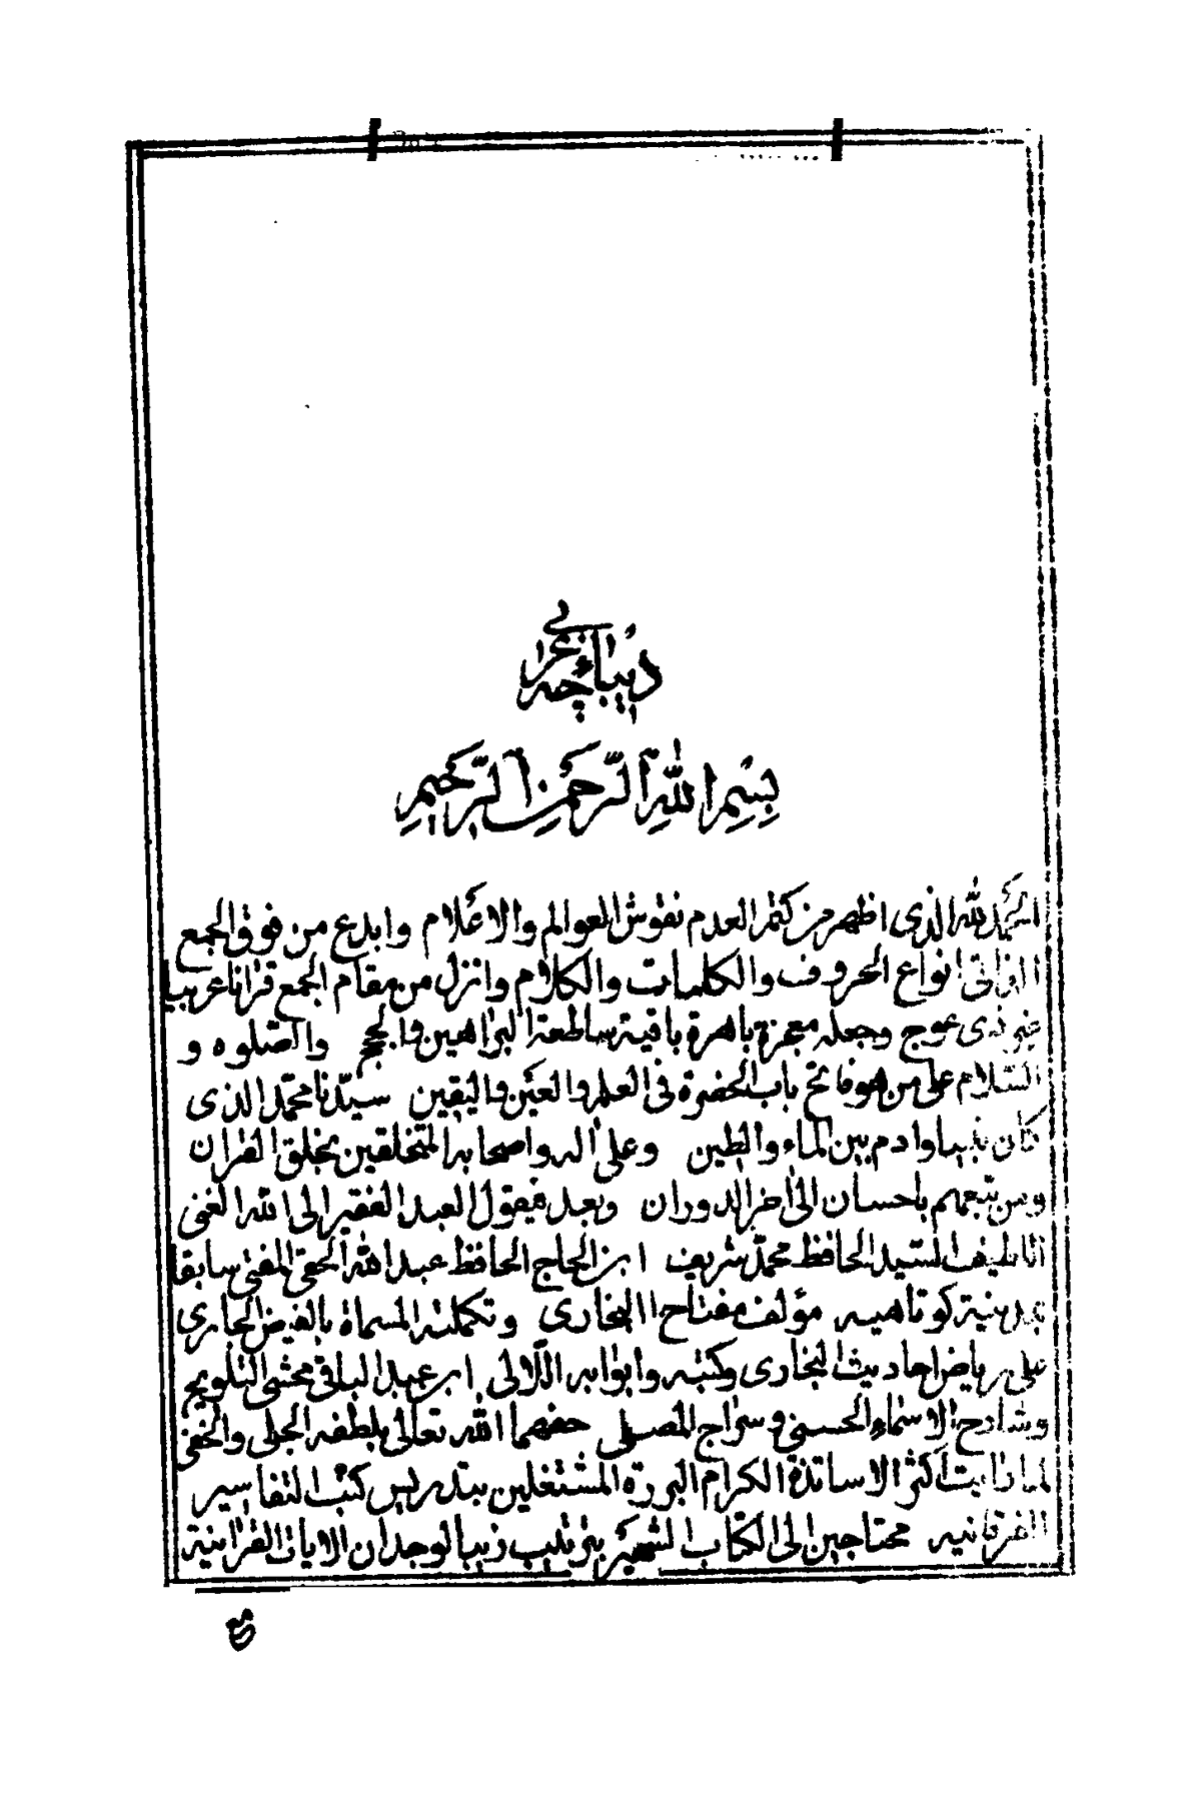 ديباجه عربى
بسم الله الرحمن الرحيم
الحمد لله الذى اظهر من كتم العدم نقوش العوالم والاعلام وابدع من فوق الجمع
الوفا فى انواع الحروف والكلمات والكلام وانزل من مقام الجمع قرانا عربيا
غير ذى عوج وجعله معجزة باهرة باقية ساطعة البراهين والحجج والصلوه و
السلام على من هو فاتح باب الحضرة فى العلم والعين واليقين سيدنا محمد الذى
كان نبيا وادم بين الماء والطين وعلى اله واصحابه المتخلقين بخلق القران
ومن تبعهم باحسان الى اخر الدوران وبعد فيقول العبد الفقير الى الله الغنى
اللطيف السيد الحافظ محمد شريف ابن الحاج الحافظ عبد الله الحقى المفتى سابقا
بمدينة كوتاهيه مؤلف مفتاح البخارى وتكملته المسماة بالفيض الجارى
على رياض احاديث البخارى وكتبه وابوابه اللآلى ابن عبد الباقى محشى التلويح
وشارح الاسماء الحسنى وسراج المصلى حفهما الله تعالى بلطفه الجلى والخفى
لما رايت اكثر الاساتذة الكرام البررة المشتغلين بتدريس كتب التفاسير
الفرقانيه محتاجين الى الكتاب الشهير بترتيب زيبا لوجدان الايات القرانية